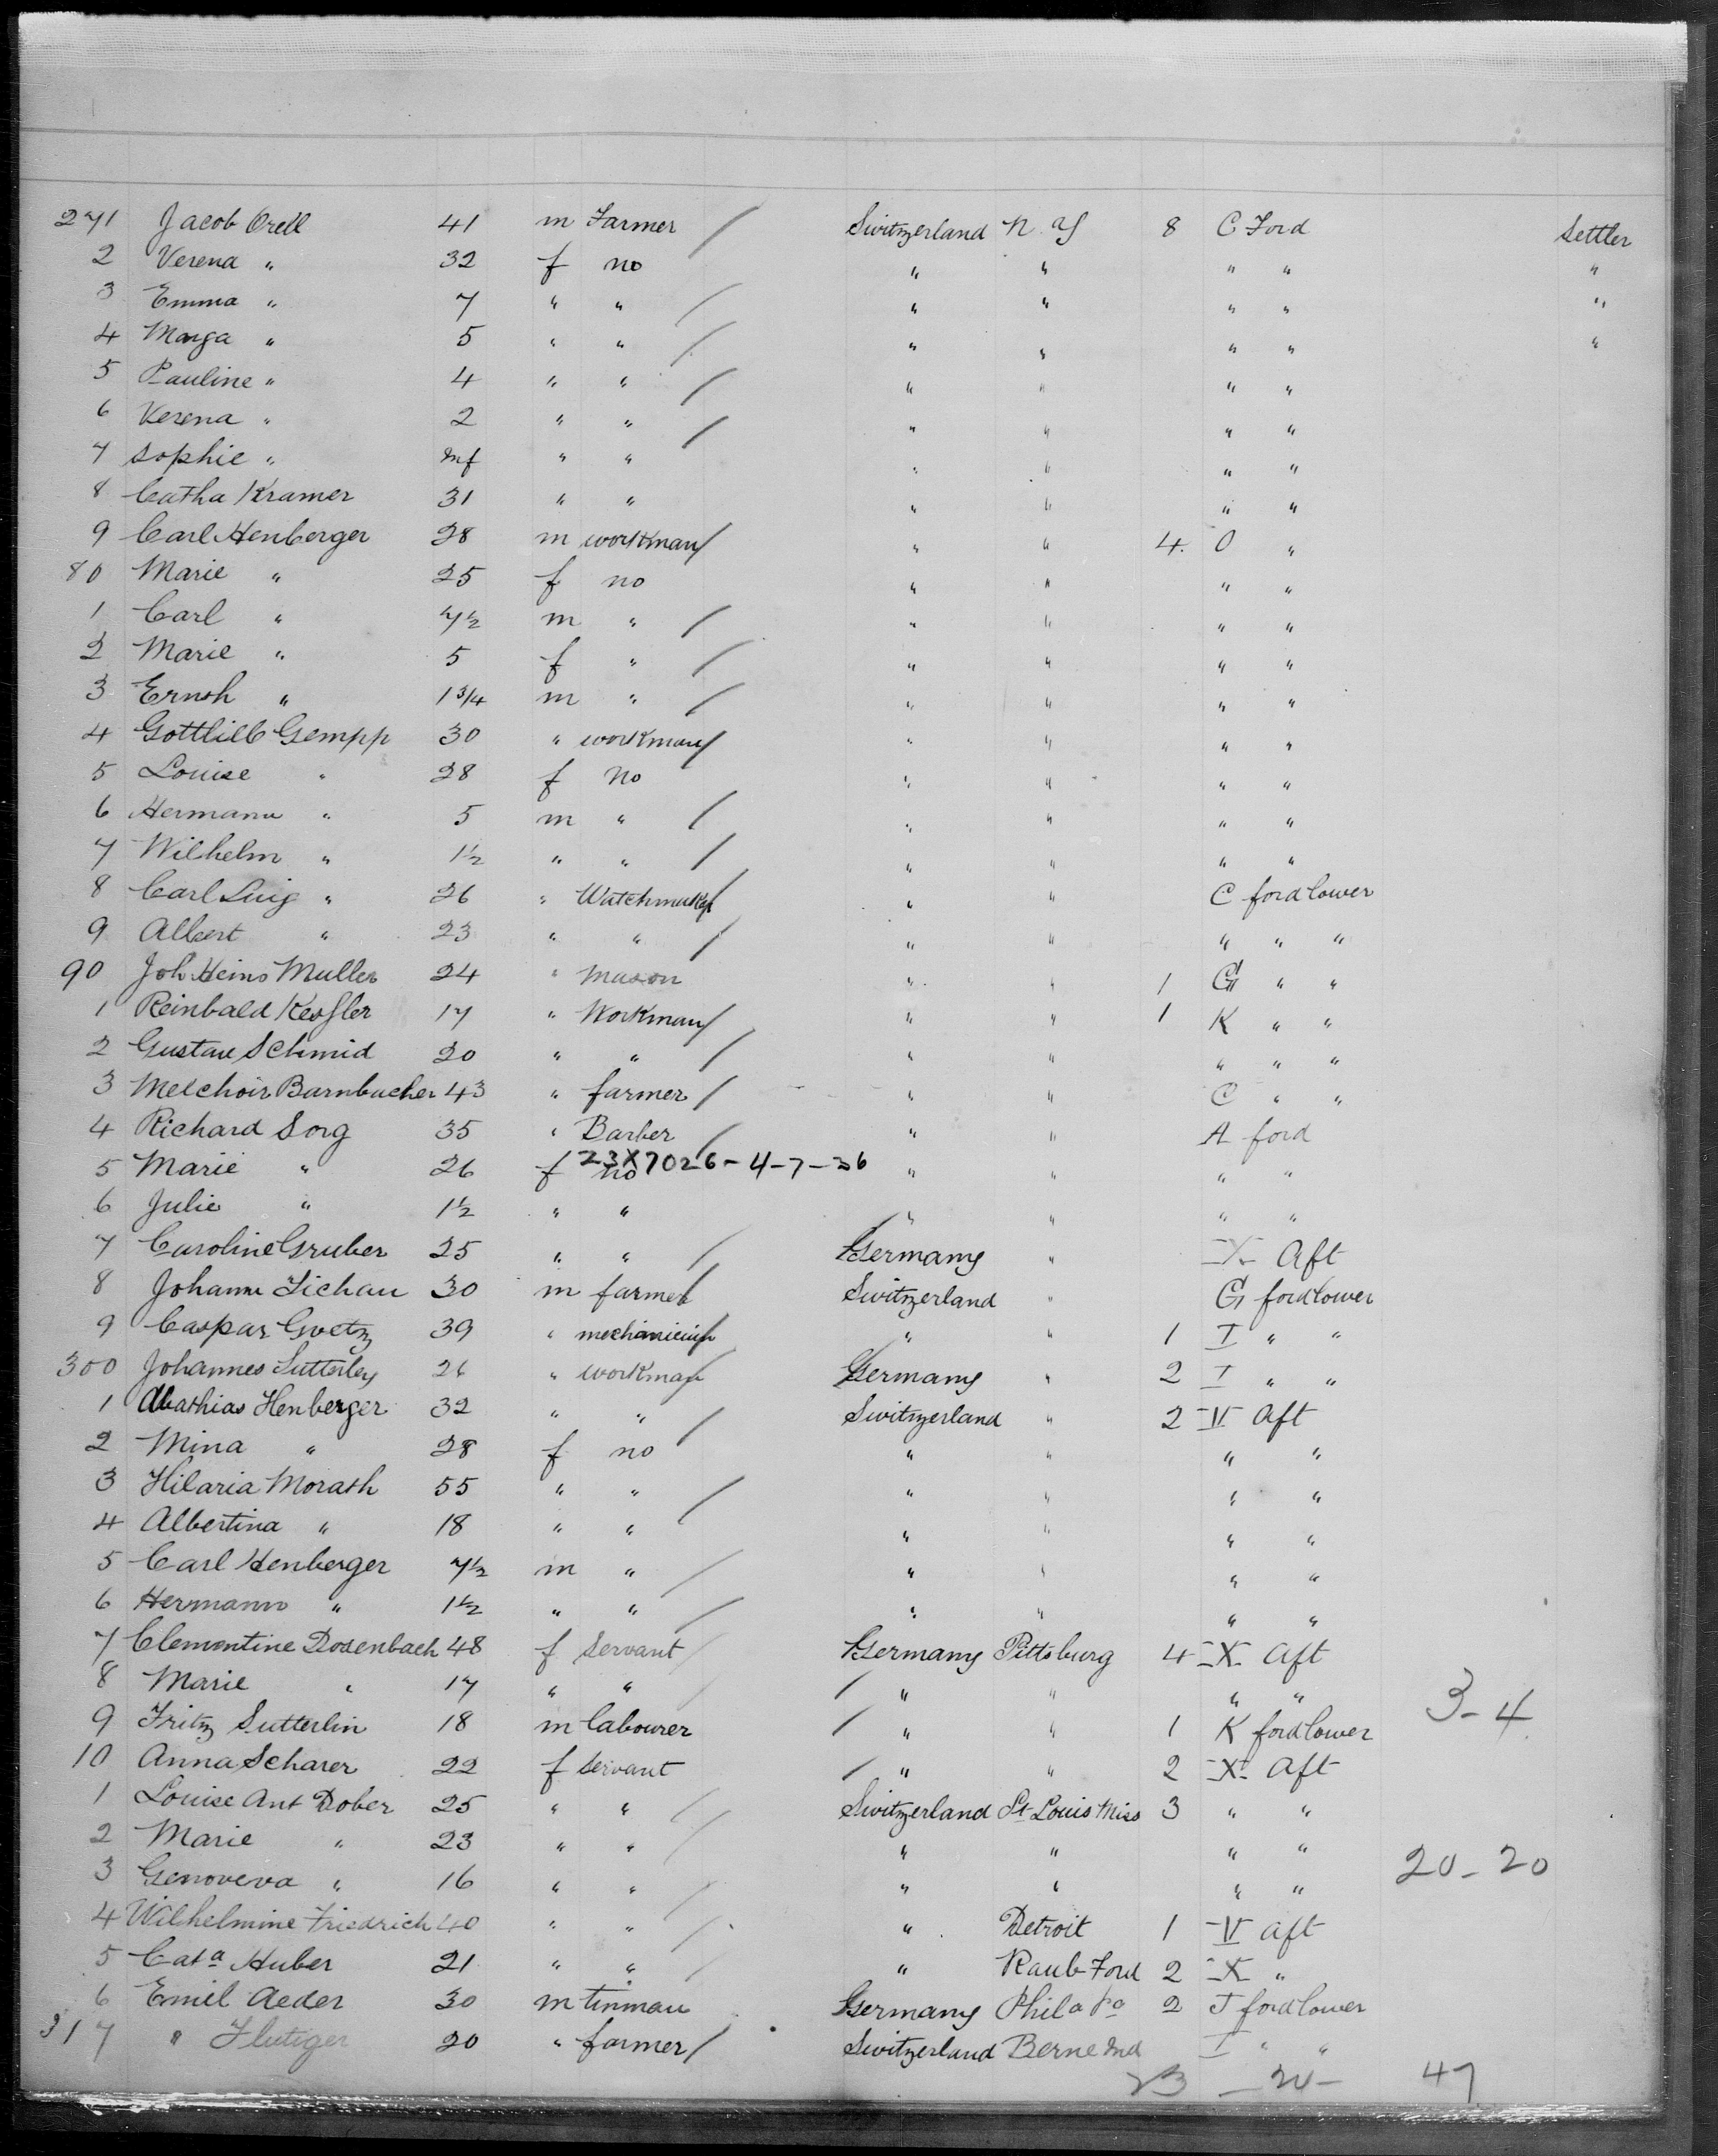 271 Jacob Orell 41 m Farmer / Switzerland N. Y 8 C Ford Settler
2 Verena " 32 f no " " " " "
3 Emma " 7 " " / " " " " "
4 Marga " 5 " " / " " " " "
5 Pauline " 4 " " / " " " "
6 Verena " 2 " " / " " " "
7 Sophie " Inf " " " " " "
8 Catha Kramer 31 " " " " " "
9 Carl Henberger 28 m workman / " " 4. O "
80 Marie " 25 f no " " " "
1 Carl " 7½ m " / " " " "
2 Marie " 5 f " / " " " "
3 Ernsh " 1¾ m " / " " " "
4 Gottlieb Gempp 30 " workman / " " " "
5 Louise " 28 f no " " " "
6 Hermann " 5 m " / " " " "
7 Wilhelm " 1½ " " / " " " "
8 Carl Luig " 26 " Watchmaker / " " C ford lower
9 Albert " 23 " " / " " " " "
90 Joh Heins Muller 24 " Mason " " 1 G " "
1 Reinbald Kessler 17 " Workman / " " 1 K " "
2 Gustave Schmid 20 " " / " " " " "
3 Melchoir Barnbacher 43 " farmer / " " C " "
4 Richard Sorg 35 " Barber / " " A ford
23X7026-4-7-36
5 Marie " 26 f no " " " "
6 Julie " 1½ " " " " " "
7 Caroline Gruber 25 " " / Germany " X Aft
8 Johann Tichau 30 m farmer / Switzerland " G ford lower
9 Caspar Goetz 39 " mechanician / " " 1 I " "
300 Johannes Sutterley 26 " workman / Germany " 2 I " "
1 Mathias Henberger 32 " " / Switzerland " 2 V Aft
2 Mina " 28 f no " " " "
3 Hilaria Morath 55 " " / " " " "
4 Albertina " 18 " " " " " "
5 Carl Henberger 7½ m " / " " " "
6 Hermann " 1½ " " / " " " "
7 Clementine Dosenbach 48 f Servant / Germany Pittsburg 4 X Aft
8 Marie " 17 " " / / " " " "
9 Fritz Sutterlin 18 m labourer / " " 1 K ford lower 3-4
10 Anna Scharer 22 f servant / " " 2 X Aft
1 Louise Ant Dober 25 " " / Switzerland St Louis Miss 3 " "
2 Marie " 23 " " / " " " "
3 Genoveva " 16 " " / " " " " 20-20
4 Wilhelmine Friedrich 40 " " / " Detroit 1 V aft
5 Cata Huber 21 " " / " Raub Ford 2 X "
6 Emil Aeder 30 m tinman Germany Phila Pa 2 J ford lower
317 " Flutiger 20 " farmer / Switzerland Berne Ind I " "
23 - 24 - 47